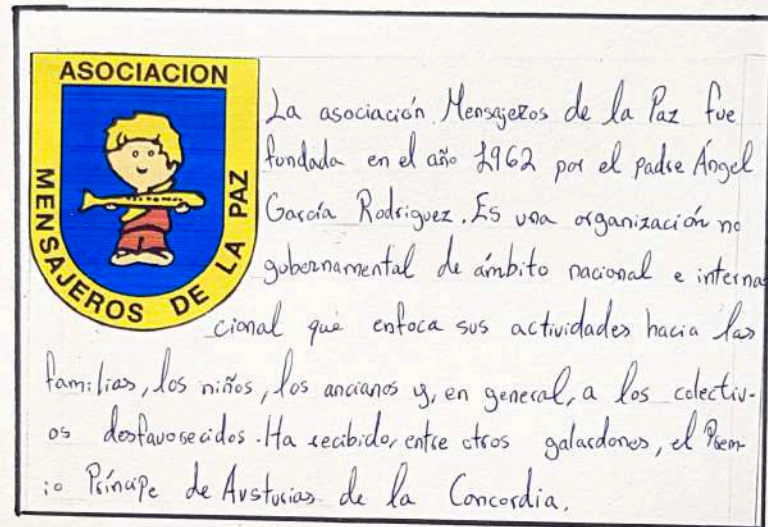 ASOCIACION
MENSAJEROS DE LA PAZ
La asociación Mensajeros de la Paz fue
fundada en el año 1962 por el padre Ángel
García Rodriguez. Es una organización no
gubernamental de ámbito nacional e interna
cional que enfoca sus actividades hacia las
familias, los niños, los ancianos y, en general, a los colectiv-
os desfavorecidos. Ha recibido, entre otros galardones, el Prem-
io Príncipe de Austurias de la Concordia.